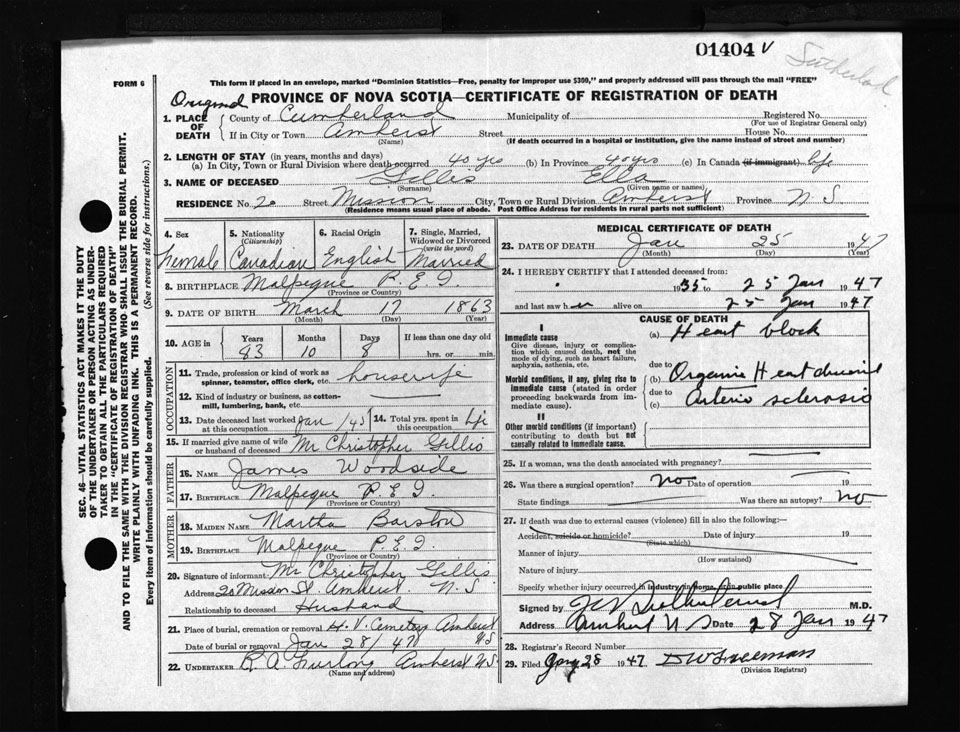 01404 V
Sutherland
FORM 6
This form if placed in an envelope, marked "Dominion Statistics—Free, penalty for improper use $300," and properly addressed will pass through the mail "FREE"
Original PROVINCE OF NOVA SCOTIA—CERTIFICATE OF REGISTRATION OF DEATH
1. PLACE OF DEATH County of Cumberland Municipality of Registered No.
(For use of Registrar General only)
If in City or Town Amherst Street House No.
(Name) (If death occurred in a hospital or institution, give the name instead of street and number)
2. LENGTH OF STAY (in years, months and days)
(a) In City, Town or Rural Division where death occurred 40 yrs (b) In Province 40 yrs (c) In Canada (if immigrant) life
3. NAME OF DECEASED Gillis Ella
(Surname) (Given name or names)
RESIDENCE No. 20 Street Mission City, Town or Rural Division Amherst Province N.S.
(Residence means usual place of abode. Post Office Address for residents in rural parts not sufficient)
4. Sex 5. Nationality (Citizenship) 6. Racial Origin 7. Single, Married, Widowed or Divorced (write the word)
Female Canadian English Married
8. BIRTHPLACE Malpeque P.E.I.
(Province or Country)
9. DATE OF BIRTH March 17 1863
(Month) (Day) (Year)
10. AGE in Years Months Days If less than one day old
83 10 8 hrs. or min.
OCCUPATION
11. Trade, profession or kind of work as spinner, teamster, office clerk, etc. housewife
12. Kind of industry or business, as cotton-mill, lumbering, bank, etc.
13. Date deceased last worked at this occupation Jan /45 14. Total yrs. spent in this occupation life
15. If married give name of wife or husband of deceased Mr Christopher Gillis
FATHER
16. NAME James Woodside
17. BIRTHPLACE Malpeque P.E.I.
(Province or Country)
MOTHER
18. MAIDEN NAME Martha Barstow
19. BIRTHPLACE Malpeque P.E.I.
(Province or Country)
20. Signature of informant Mr Christopher Gillis
Address 20 Mission St. Amherst. N.S
Relationship to deceased Husband
21. Place of burial, cremation or removal H.V. Cemetery Amherst NS
Date of burial or removal Jan 28/47
22. UNDERTAKER R.A. Furlong Amherst NS
(Name and address)
MEDICAL CERTIFICATE OF DEATH
23. DATE OF DEATH Jan 25 1947
(Month) (Day) (Year)
24. I HEREBY CERTIFY that I attended deceased from:
1935 to 25 Jan 1947
and last saw her alive on 25 Jan 1947
CAUSE OF DEATH
I
Immediate cause
Give disease, injury or complication which caused death, not the mode of dying, such as heart failure, asphyxia, asthenia, etc.
(a) Heart block
due to
Morbid conditions, if any, giving rise to immediate cause (stated in order proceeding backwards from immediate cause).
(b) Organic Heart disease
due to
(c) Arterio sclerosis
II
Other morbid conditions (if important) contributing to death but not causally related to immediate cause.
25. If a woman, was the death associated with pregnancy?
26. Was there a surgical operation? No Date of operation 19
State findings Was there an autopsy? No
27. If death was due to external causes (violence) fill in also the following:—
Accident, suicide or homicide? Date of injury 19
(State which)
Manner of injury
(How sustained)
Nature of injury
Specify whether injury occurred in industry, in home, or in public place
Signed by Sutherland M.D.
Address Amherst N S Date 28 Jan 1947
28. Registrar's Record Number
29. Filed Jany 28 1947 DW Freeman
(Division Registrar)
SEC. 46—VITAL STATISTICS ACT MAKES IT THE DUTY
OF THE UNDERTAKER OR PERSON ACTING AS UNDER-
TAKER TO OBTAIN ALL THE PARTICULARS REQUIRED
IN THE "CERTIFICATE OF REGISTRATION OF DEATH"
AND TO FILE THE SAME WITH THE DIVISION REGISTRAR WHO SHALL ISSUE THE BURIAL PERMIT.
WRITE PLAINLY WITH UNFADING INK. THIS IS A PERMANENT RECORD.
Every item of information should be carefully supplied. (See reverse side for instructions.)